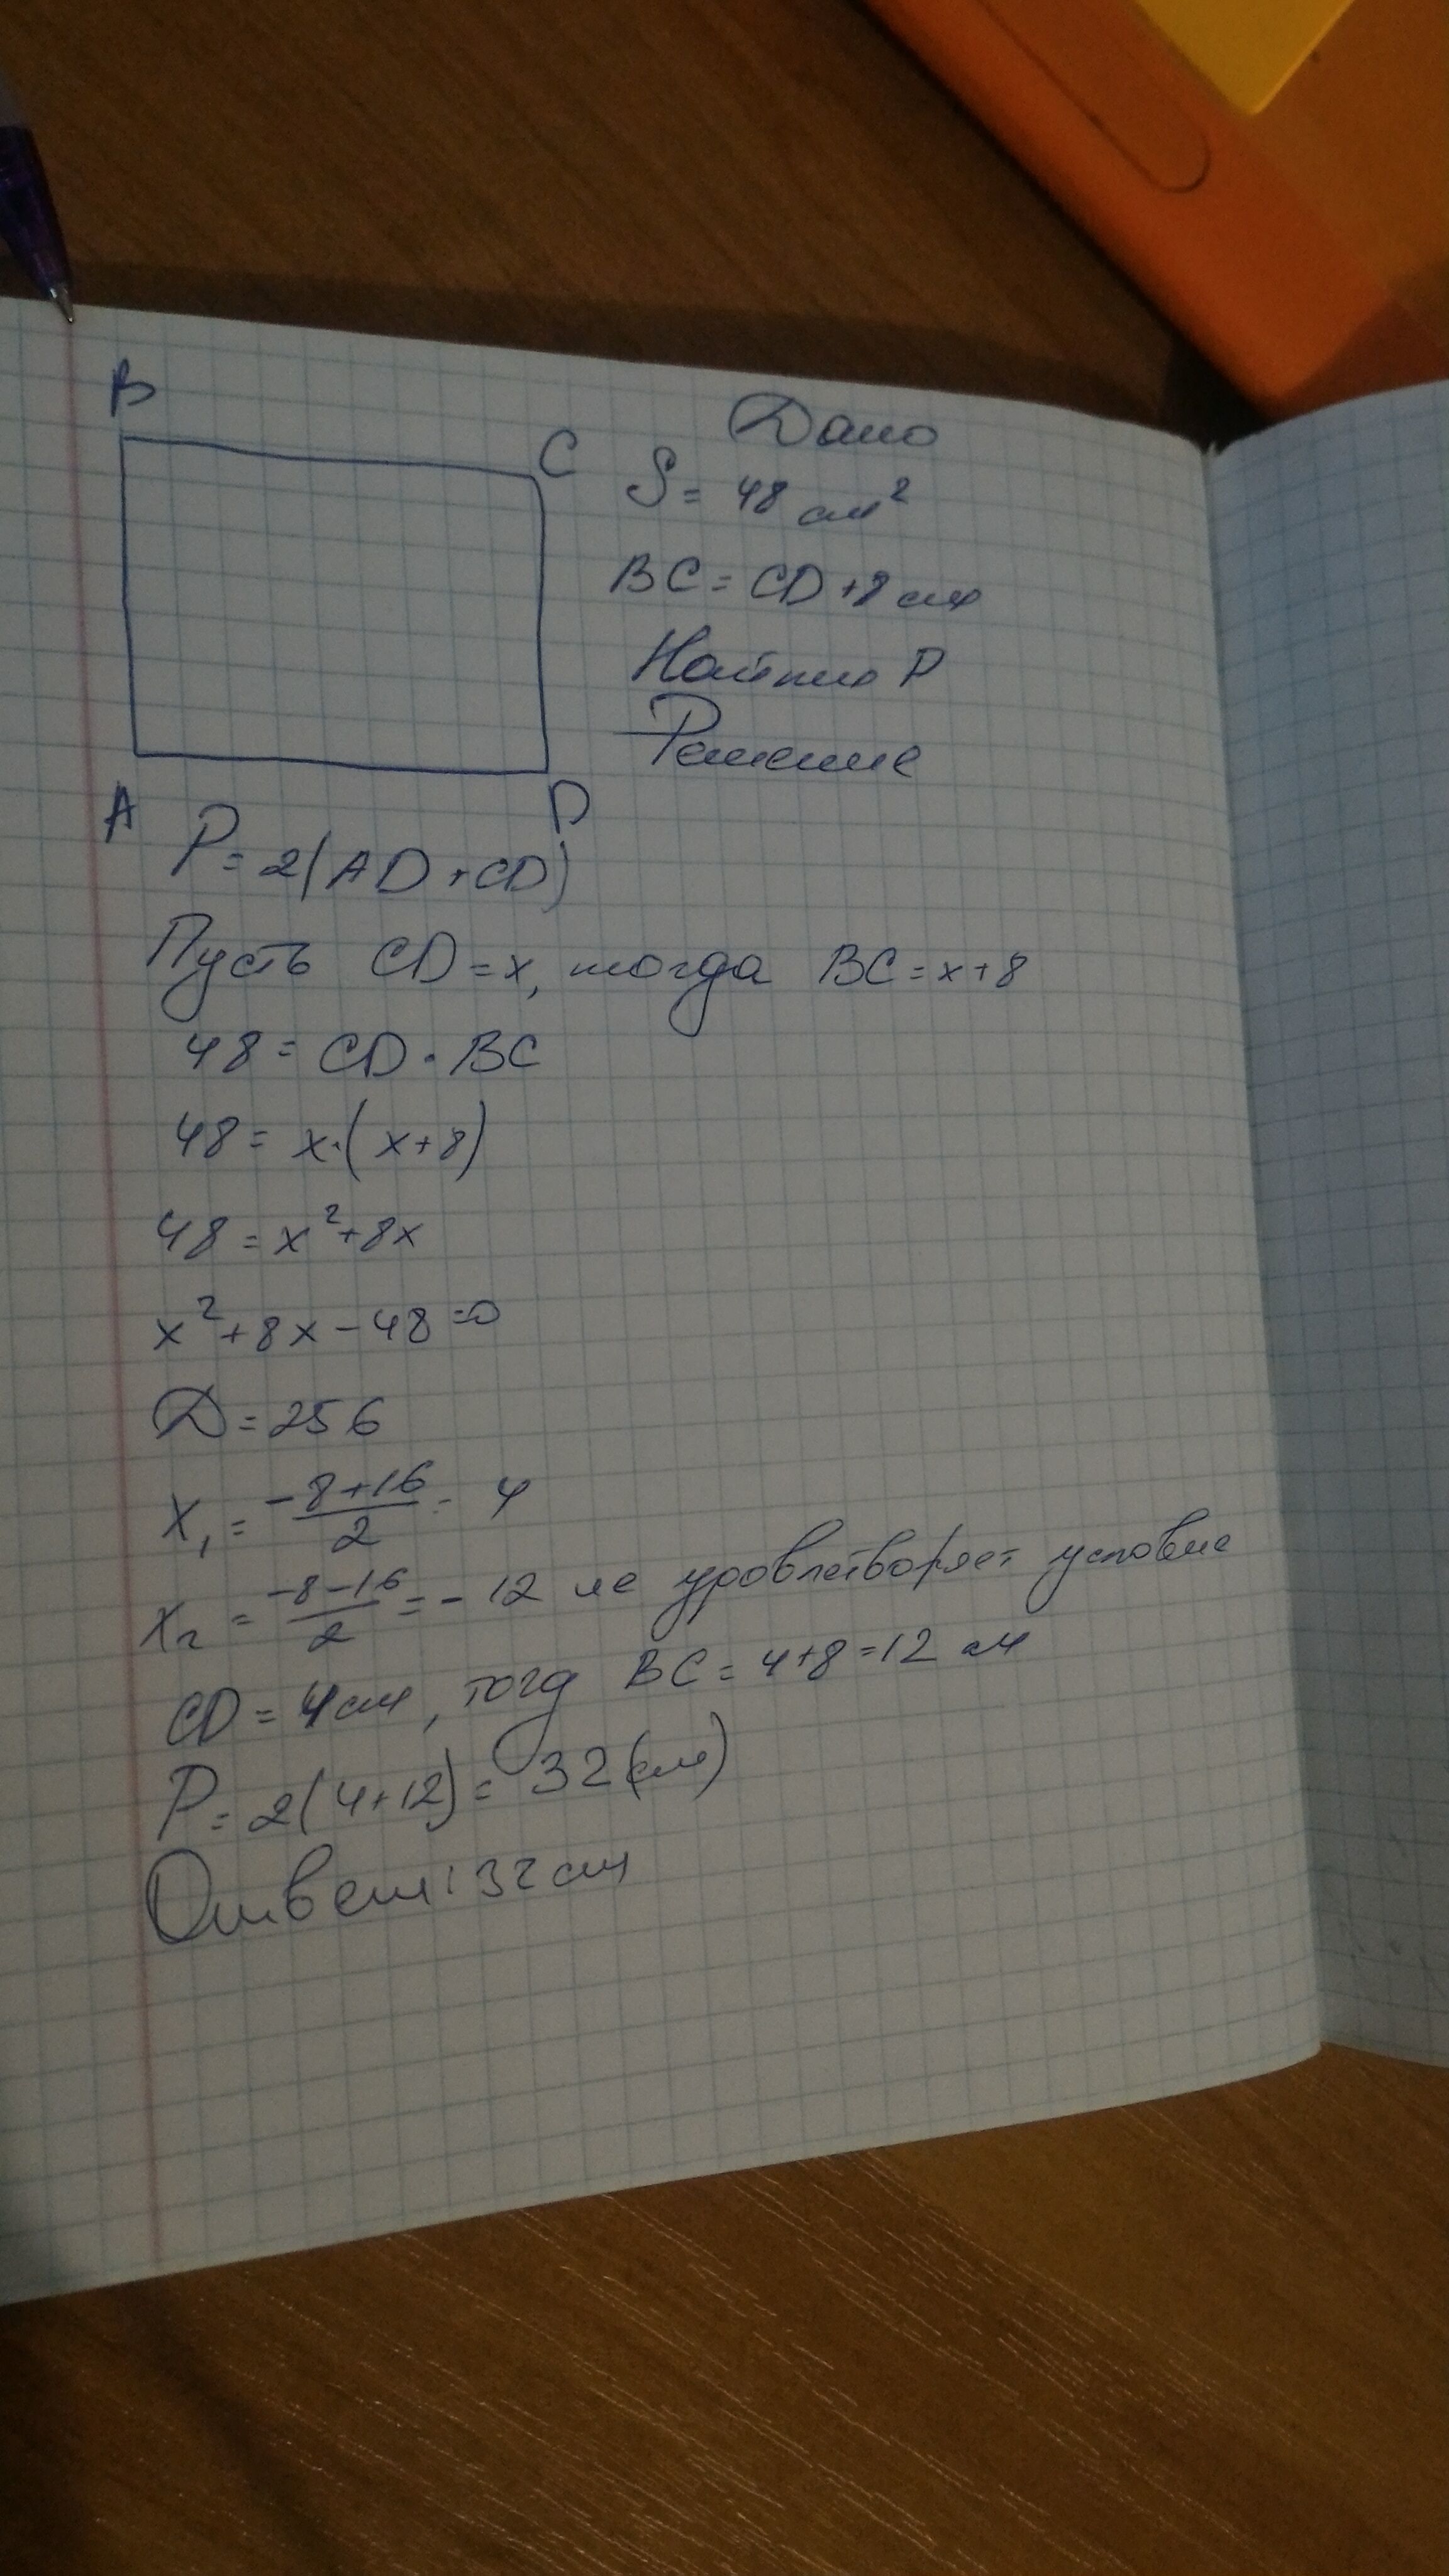 B
C
Дано
S = 48 см²
BC = CD + 8 см
Найти P
Решение
A
D
P = 2(AD + CD)
Пусть CD = x, тогда BC = x + 8
48 = CD · BC
48 = x · (x + 8)
48 = x² + 8x
x² + 8x - 48 = 0
D = 256
x₁ = (-8+16)/2 = 4
x₂ = (-8-16)/2 = -12 не уровлетворяет условие
CD = 4 см, тогд BC = 4+8 = 12 см
P = 2(4+12) = 32 (см)
Ответ: 32 см